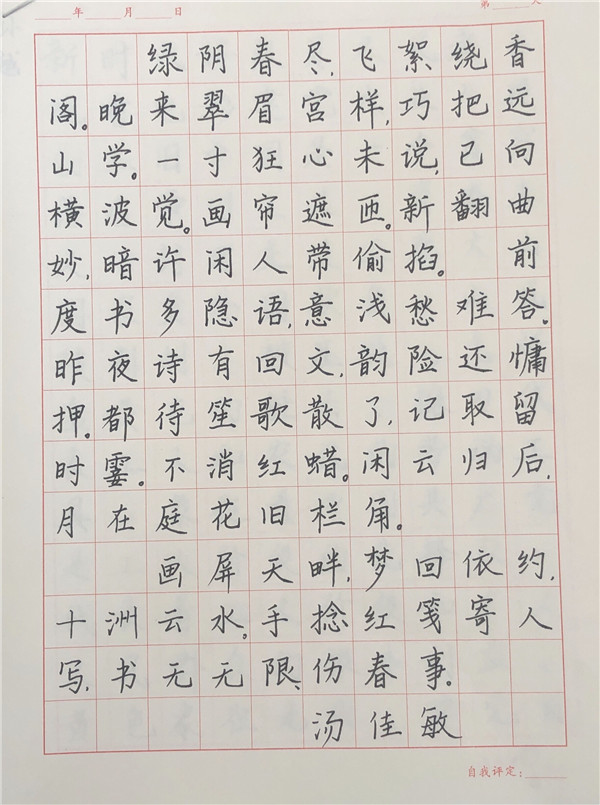 年 月 日 第 天
绿阴春尽,飞絮绕香
阁。晚来翠眉宫样,巧把远
山学。一寸狂心未说,已向
横波觉。画帘遮匝。新翻曲
妙,暗许闲人带偷掐。 前
度书多隐语,意浅愁难答。
昨夜诗有回文,韵险还慵
押。都待笙歌散了,记取留
时霎。不消红蜡。闲云归后,
月在庭花旧栏角。
画屏天畔,梦回依约,
十洲云水。手捻红笺寄人
写,书无无限、伤春事。
汤佳敏
自我评定: